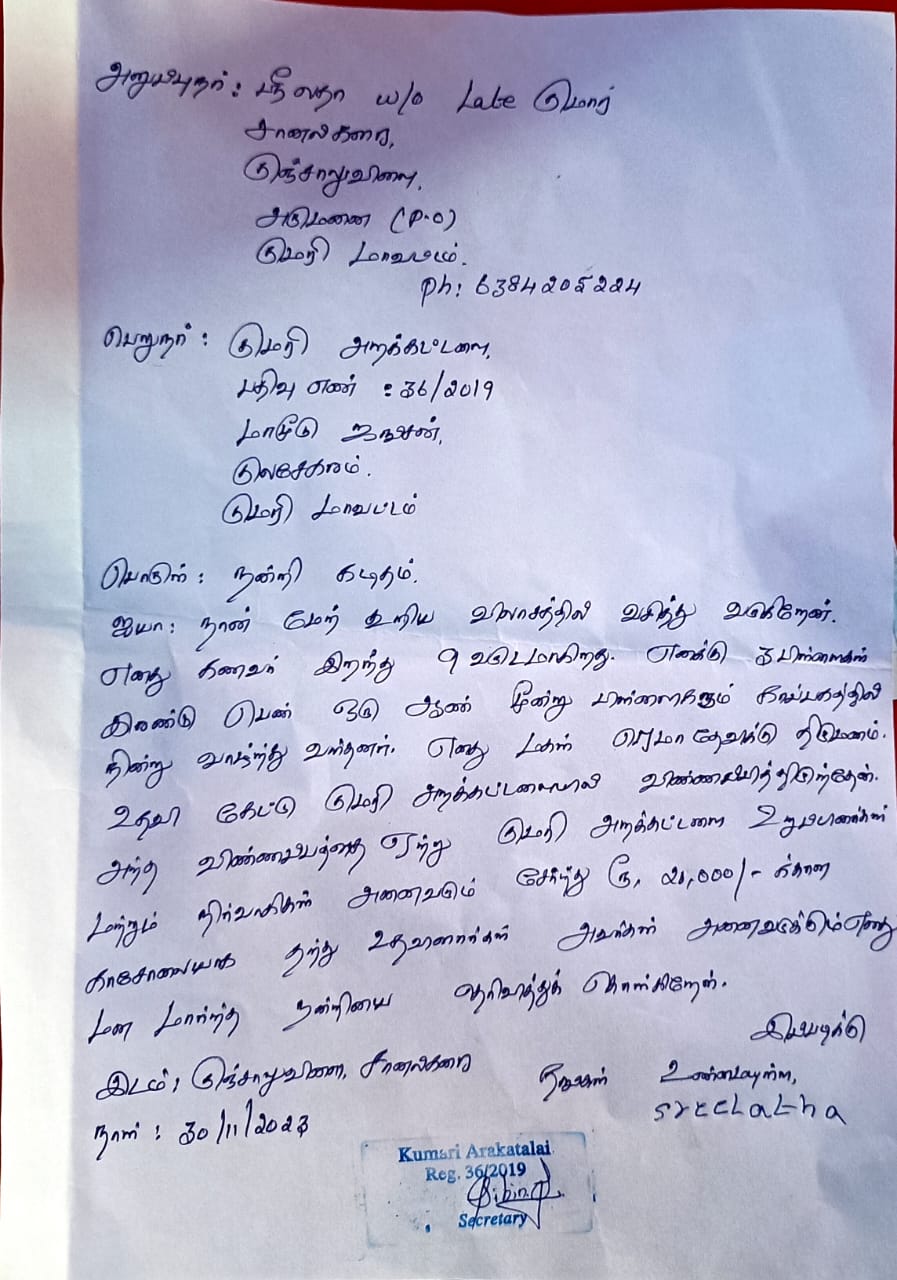 அனுப்புநர் : ஸ்ரீலதா w/o Late குமார்
சானல்கரை,
குஞ்சாலுவிளை,
அருமனை (P.O)
குமரி மாவட்டம்.
Ph: 6384205224
பெறுநர் : குமரி அறக்கட்டளை,
பதிவு எண் : 36/2019
மாமூடு ஜங்சன்,
குலசேகரம்.
குமரி மாவட்டம்
பொருள் : நன்றி கடிதம்.
ஐயா : நான் மேற் கூறிய விலாசத்தில் வசித்து வருகிறேன்.
எனது கணவர் இறந்து 9 வருடமாகிறது. எனக்கு 3 பிள்ளைகள்
இரண்டு பெண் ஒரு ஆண் மூன்று பிள்ளைகளும் காப்பகத்தில்
நின்று வாழ்ந்து வந்தனர். எனது மகள் பிரேமா தேவிக்கு திருமணம்.
உதவி கேட்டு குமரி அறக்கட்டளையில் விண்ணப்பித்திருந்தேன்.
அந்த விண்ணப்பத்தை ஏற்று குமரி அறக்கட்டளை உறுப்பினர்கள்
மற்றும் நிர்வாகிகள் அனைவரும் சேர்ந்து ரூ, 21,000/- க்கான
காசோலையாக தந்து உதவினார்கள் அவர்கள் அனைவருக்கும் எனது
மன மார்ந்த நன்றியை தெரிவித்துக் கொள்கிறேன்.
இப்படிக்கு
இடம் : குஞ்சாலுவிளை, சானல்கரை
தங்கள் உண்மையுள்ள,
sreelatha
நாள் : 30/11/2023
Kumari Arakatalai
Reg. 36/2019
Secretary